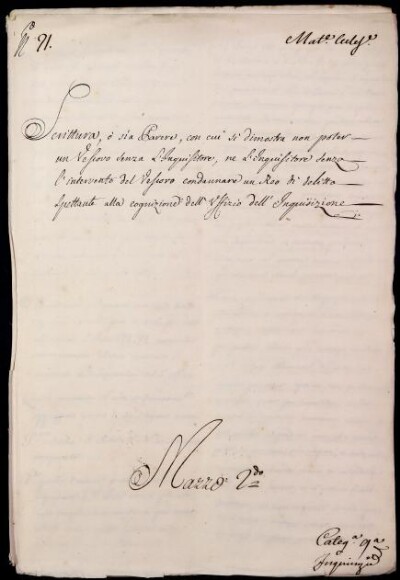 N.º 91.
Mat.e Eccles.e
Scrittura, ò sia Parere, con cui si dimostra non poter
un Vescovo senza L'Inquisitore, ne L'Inquisitore senza
l'intervento del Vescovo condannare un Reo di delitto
spettante alla cognizione dell'Uffizio dell'Inquisizione
Mazzo 2.do
Categ.a 9.a